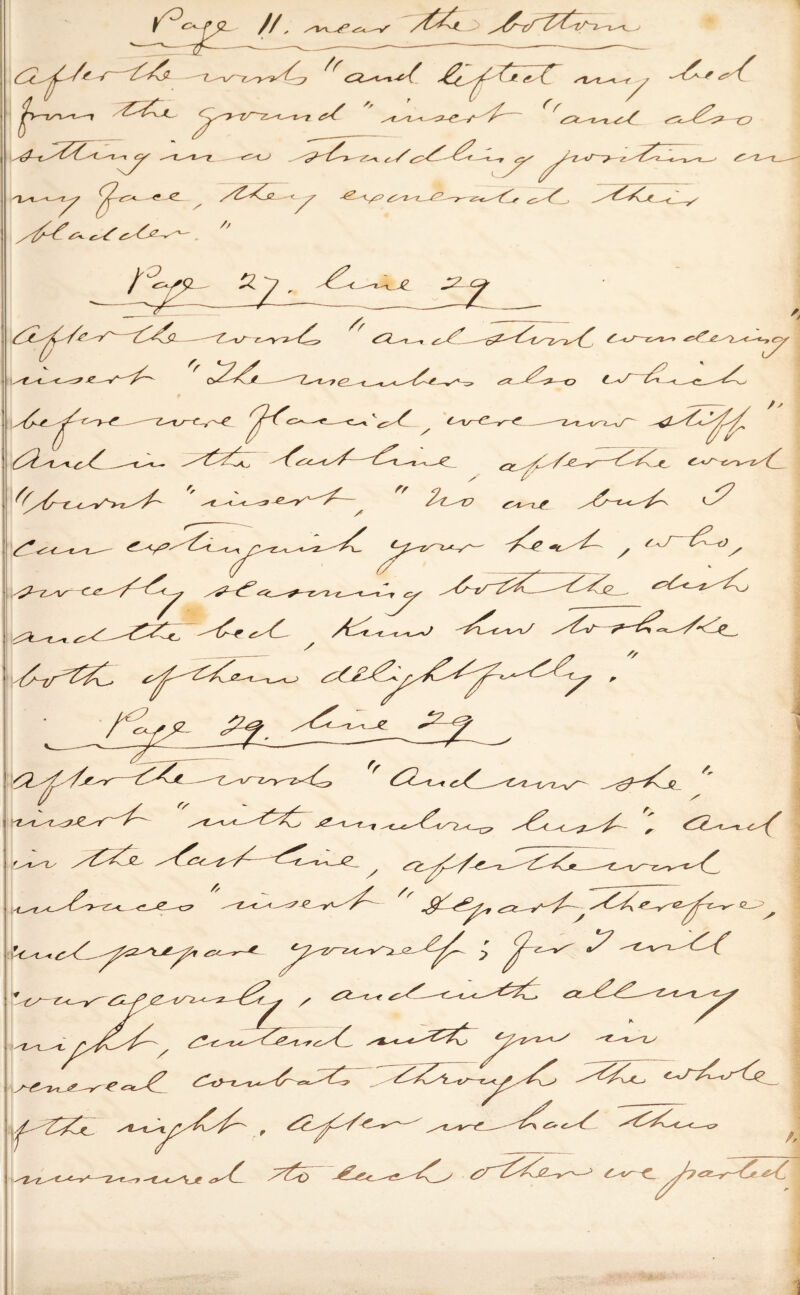 Page 11. near the bottom
after the words "and lifted my bed
from the ground" insert "and also
sitting in a straddling position on
my face, they exonerated their
bladder."
Page 27. line 29
after the words "and stood wondering"
insert "The members also which
before were flaccid, were now stiff"
And in the last line, after the word
"burnt" insert, "No one but I
can extinguish your heat, who,
sweetly seasoning both the dish
and the bed, know how to shake
both of them delightfully."
Page 29. line 29
after the words "And now she",
insert "with emulous lust". And
in the last line, after the word
embraces" insert "Depart, therefore,
and prepare yourself; for I will
courageously, and with all my
might, contend with you in
venereal combats through the whole
of the night. After we had thus
murmured to each other we parted."